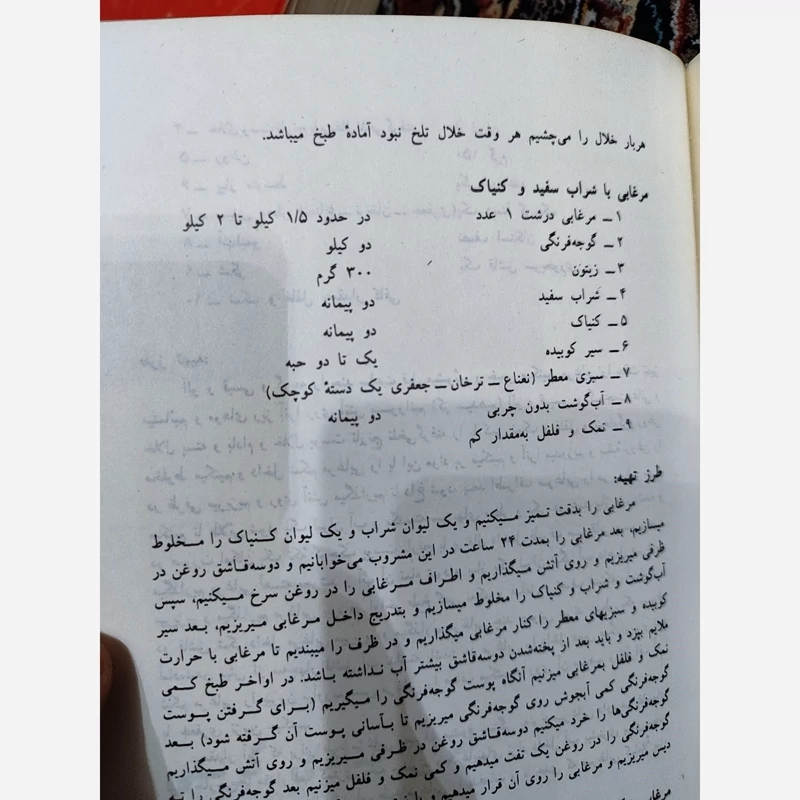 هربار خلال را می‌چشیم هر وقت خلال تلخ نبود آمادهٔ طبخ میباشد.
مرغابی با شراب سفید و کنیاک
۱ــ مرغابی درشت ۱ عدد در حدود ۱/۵ کیلو تا ۲ کیلو
۲ــ گوجه‌فرنگی دو کیلو
۳ــ زیتون ۳۰۰ گرم
۴ــ شراب سفید دو پیمانه
۵ــ کنیاک دو پیمانه
۶ــ سیر کوبیده یک تا دو حبه
۷ــ سبزی معطر (نعناع ــ ترخان ــ جعفری یک دستهٔ کوچک)
۸ــ آب‌گوشت بدون چربی دو پیمانه
۹ــ نمک و فلفل به‌مقدار کم
طرز تهیه:
مرغابی را بدقت تمیز میکنیم و یک لیوان شراب و یک لیوان کنیاک را مخلوط
میسازیم، بعد مرغابی را بمدت ۲۴ ساعت در این مشروب می‌خوابانیم و دوسه‌قاشق روغن در
ظرفی میریزیم و روی آتش میگذاریم و اطراف مرغابی را در روغن سرخ میکنیم، سپس
آب‌گوشت و شراب و کنیاک را مخلوط میسازیم و بتدریج داخل مرغابی میریزیم، بعد سیر
کوبیده و سبزیهای معطر را کنار مرغابی میگذاریم و در ظرف را میبندیم تا مرغابی با حرارت
ملایم بپزد و باید بعد از پخته‌شدن دوسه‌قاشق بیشتر آب نداشته باشد. در اواخر طبخ کمی
نمک و فلفل بمرغابی میزنیم آنگاه پوست گوجه‌فرنگی را میگیریم (برای گرفتن پوست
گوجه‌فرنگی کمی آبجوش روی گوجه‌فرنگی میریزیم تا بآسانی پوست آن گرفته شود) بعد
گوجه‌فرنگی‌ها را خرد میکنیم دوسه‌قاشق روغن در ظرفی میریزیم و روی آتش میگذاریم
گوجه‌فرنگی را در روغن یک تفت میدهیم و کمی نمک و فلفل میزنیم بعد گوجه‌فرنگی را
دیس میریزیم و مرغابی را روی آن قرار میدهیم و